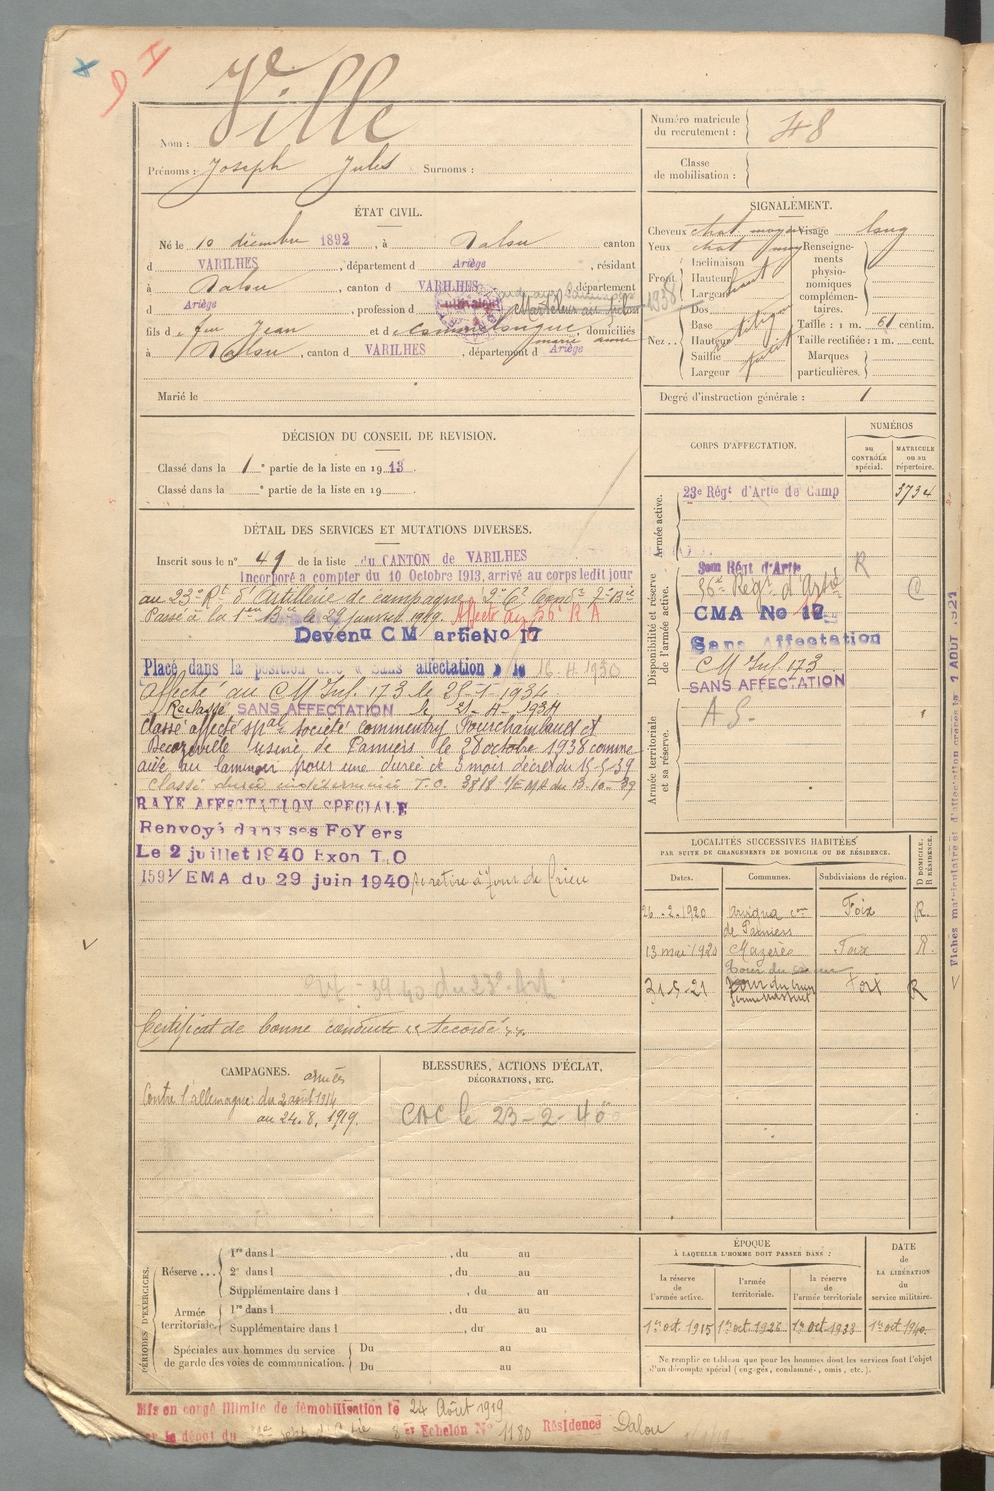 Ville
Nom :
Prénoms : Joseph Jules Surnoms :
Numéro matricule
du recrutement : 48
Classe
de mobilisation :
ÉTAT CIVIL.
Né le 10 décembre 1892, à Dalou canton
d VARILHES, département d Ariège, résidant
à Dalou, canton d VARILHES, département
d Ariège, profession d 1938
fils de feu Jean et d Esmérélongue marie anne, domiciliés
à Dalou, canton d VARILHES, département d Ariège
Marié le
SIGNALEMENT.
Cheveux chat. moyen Visage long
Yeux chat moy Renseigne-
ments
physio-
nomiques
complémen-
taires.
Front Inclinaison
Hauteur haut
Largeur
Nez Dos
Base
Hauteur
Saillie petit
Largeur
Taille : 1 m. 61 centim.
Taille rectifiée : 1 m. cent.
Marques
particulières.
Degré d'instruction générale : 1
DÉCISION DU CONSEIL DE REVISION.
Classé dans la 1re partie de la liste en 1913
Classé dans la e partie de la liste en 19
DÉTAIL DES SERVICES ET MUTATIONS DIVERSES.
Inscrit sous le n° 49 de la liste du CANTON de VARILHES
Incorporé a compter du 10 Octobre 1913, arrivé au corps ledit jour
au 23e Rt d'Artillerie de campagne 2e Cr Condr 2e Bie
Passé à la 1ère Bie le 29 janvier 1919. Affecté au 56e R A
Devenu C M artie No 17
Placé dans la position dite « Sans affectation » le 16-4 1930
Affecté au C M Inf. 173 le 25-1-1934
Reclassé SANS AFFECTATION le 21-4-1934
Classé affecté spal société commentry Fourchambaud et
Decazeville usine de Pamiers le 28 octobre 1938 comme
aide au laminoir pour une durée de 3 mois décret du 15-5-39
Classé durée indéterminée T.O. 3818 1/EMA du 13-10-39
RAYE AFFECTATION SPECIALE
Renvoyé dans ses FoYers
Le 2 juillet 1940 Exon T.O
1591/EMA du 29 juin 1940 se retire à Jour de Crieu
39 40 du 23e Art
Certificat de bonne conduite « Accordé »
CORPS D'AFFECTATION.
NUMÉROS
au
CONTRÔLE
spécial.
MATRICULE
ou au
répertoire.
Armée active.
23e Régt d'Artie de Camp 3734
Disponibilité et réserve
de l'armée active.
Régt d'Artie R
56e Régt d'Artie C
CMA No 17
Sans Affectation
CM Inf. 173
SANS AFFECTATION
Armée territoriale
et sa réserve.
A S.
LOCALITÉS SUCCESSIVES HABITÉES
PAR SUITE DE CHANGEMENTS DE DOMICILE OU DE RÉSIDENCE.
Dates. Communes. Subdivisions de région. D DOMICILE; R RÉSIDENCE.
26-2-1920 Arvigna con de Pamiers Foix R.
13 mai 1920 Mazerès Foix R.
21-5-21 Jour du Crieu Foix R
Fiches matriculaire et d'affectation créées le 1 AOUT 1921
CAMPAGNES. armées
Contre l'allemagne: du 2 août 1914
au 24.8.1919.
BLESSURES, ACTIONS D'ÉCLAT,
DÉCORATIONS, ETC.
CAC le 23-2-40
PÉRIODES D'EXERCICES.
Réserve ... 1re dans l , du au
2e dans l , du au
Supplémentaire dans l , du au
Armée
territoriale. 1re dans l , du au
Supplémentaire dans l , du au
Spéciales aux hommes du service
de garde des voies de communication. Du au
Du au
ÉPOQUE
À LAQUELLE L'HOMME DOIT PASSER DANS :
la réserve
de
l'armée active.
l'armée
territoriale.
la réserve
de
l'armée territoriale
DATE
de
LA LIBÉRATION
du
service militaire.
1er oct 1915 1er oct 1926 1er oct 1933 1er oct 1940.
Ne remplir ce tableau que pour les hommes dont les services font l'objet
d'un décompte spécial (engagés, condamnés, omis, etc.).
Mis en congé illimité de démobilisation le 24 Août 1919
par le dépôt du 8e Echelon No 1180 Résidence Dalou